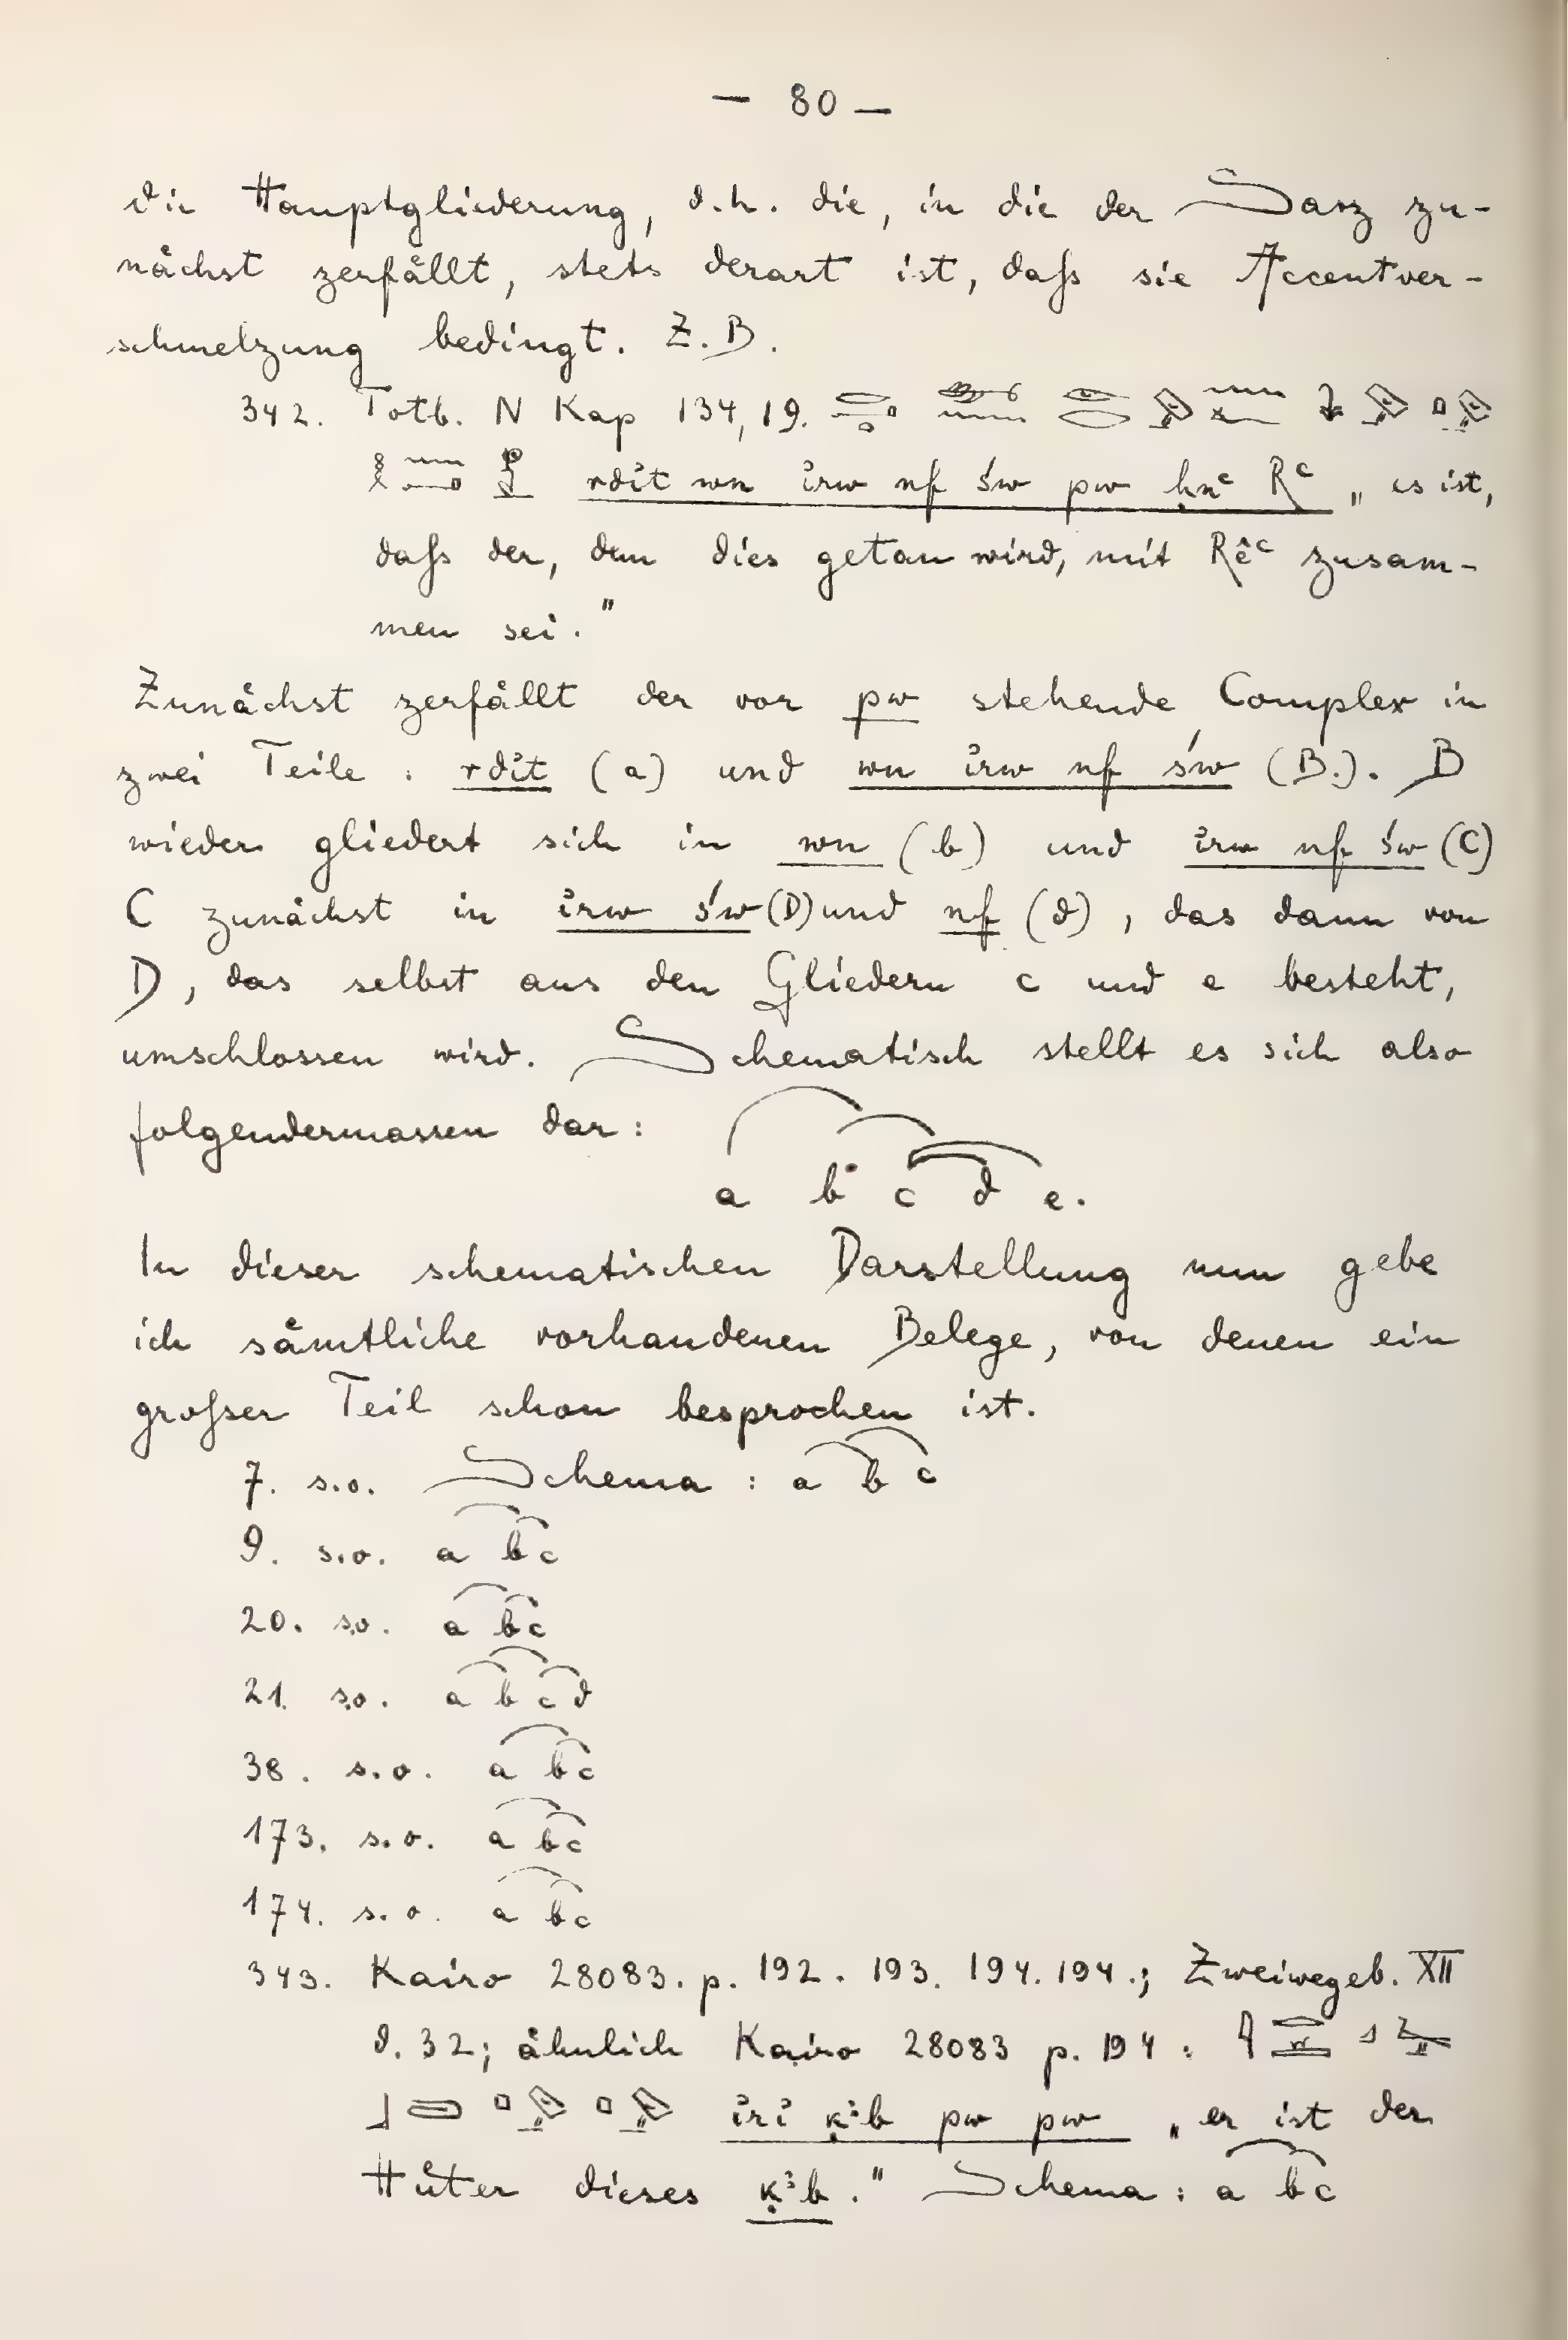 — 80 —
die Hauptgliederung, d.h. die, in die der Satz zu-
nächst zerfällt, stets derart ist, daß sie Accentver-
schmelzung bedingt. Z.B.
342. Totb. N Kap 134,19.
rdỉt wn ỉrw nf św pw ḥnꜥ Rꜥ „es ist,
daß der, dem dies getan wird, mit Rêꜥ zusam-
men sei."
Zunächst zerfällt der vor pw stehende Complex in
zwei Teile: rdỉt (a) und wn ỉrw nf św (B.). B
wieder gliedert sich in wn (b) und ỉrw nf św (C)
C zunächst in ỉrw św (D) und nf (d), das dann von
D, das selbst aus den Gliedern c und e besteht,
umschlossen wird. Schematisch stellt es sich also
folgendermassen dar:
a b c d e.
In dieser schematischen Darstellung nun gebe
ich sämtliche vorhandenen Belege, von denen ein
großer Teil schon besprochen ist.
7. s.o. Schema: a b c
9. s.o. a b c
20. s.o. a b c
21. s.o. a b c d
38. s.o. a b c
173. s.o. a b c
174. s.o. a b c
343. Kairo 28083. p. 192. 193. 194. 194.; Zweiwegeb. XII
d. 32; ähnlich Kairo 28083 p. 194:
ỉrỉ ḳꜣb pw pw „er ist der
Hüter dieses ḳꜣb." Schema: a b c